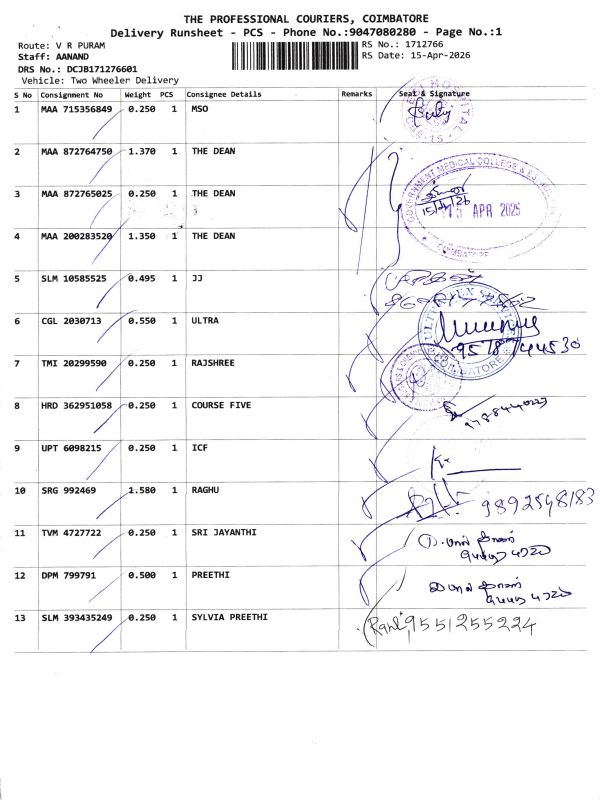 THE PROFESSIONAL COURIERS, COIMBATORE
Delivery Runsheet - PCS - Phone No.:9047080280 - Page No.:1
Route: V R PURAM
RS No.: 1712766
Staff: AANAND
RS Date: 15-Apr-2026
DRS No.: DCJB171276601
Vehicle: Two Wheeler Delivery
S No Consignment No Weight PCS Consignee Details Remarks Seal & Signature
1 MAA 715356849 0.250 1 MSO
2 MAA 872764750 1.370 1 THE DEAN
3 MAA 872765025 0.250 1 THE DEAN
GOVERNMENT MEDICAL COLLEGE
15/4/26
15 APR 2026
COIMBATORE
4 MAA 200283520 1.350 1 THE DEAN
5 SLM 10585525 0.495 1 JJ
6 CGL 2030713 0.550 1 ULTRA
COIMBATORE
7 TMI 20299590 0.250 1 RAJSHREE
8 HRD 362951058 0.250 1 COURSE FIVE
9 UPT 6098215 0.250 1 ICF
10 SRG 992469 1.580 1 RAGHU
9892548183
11 TVM 4727722 0.250 1 SRI JAYANTHI
12 DPM 799791 0.500 1 PREETHI
13 SLM 393435249 0.250 1 SYLVIA PREETHI
9551255224